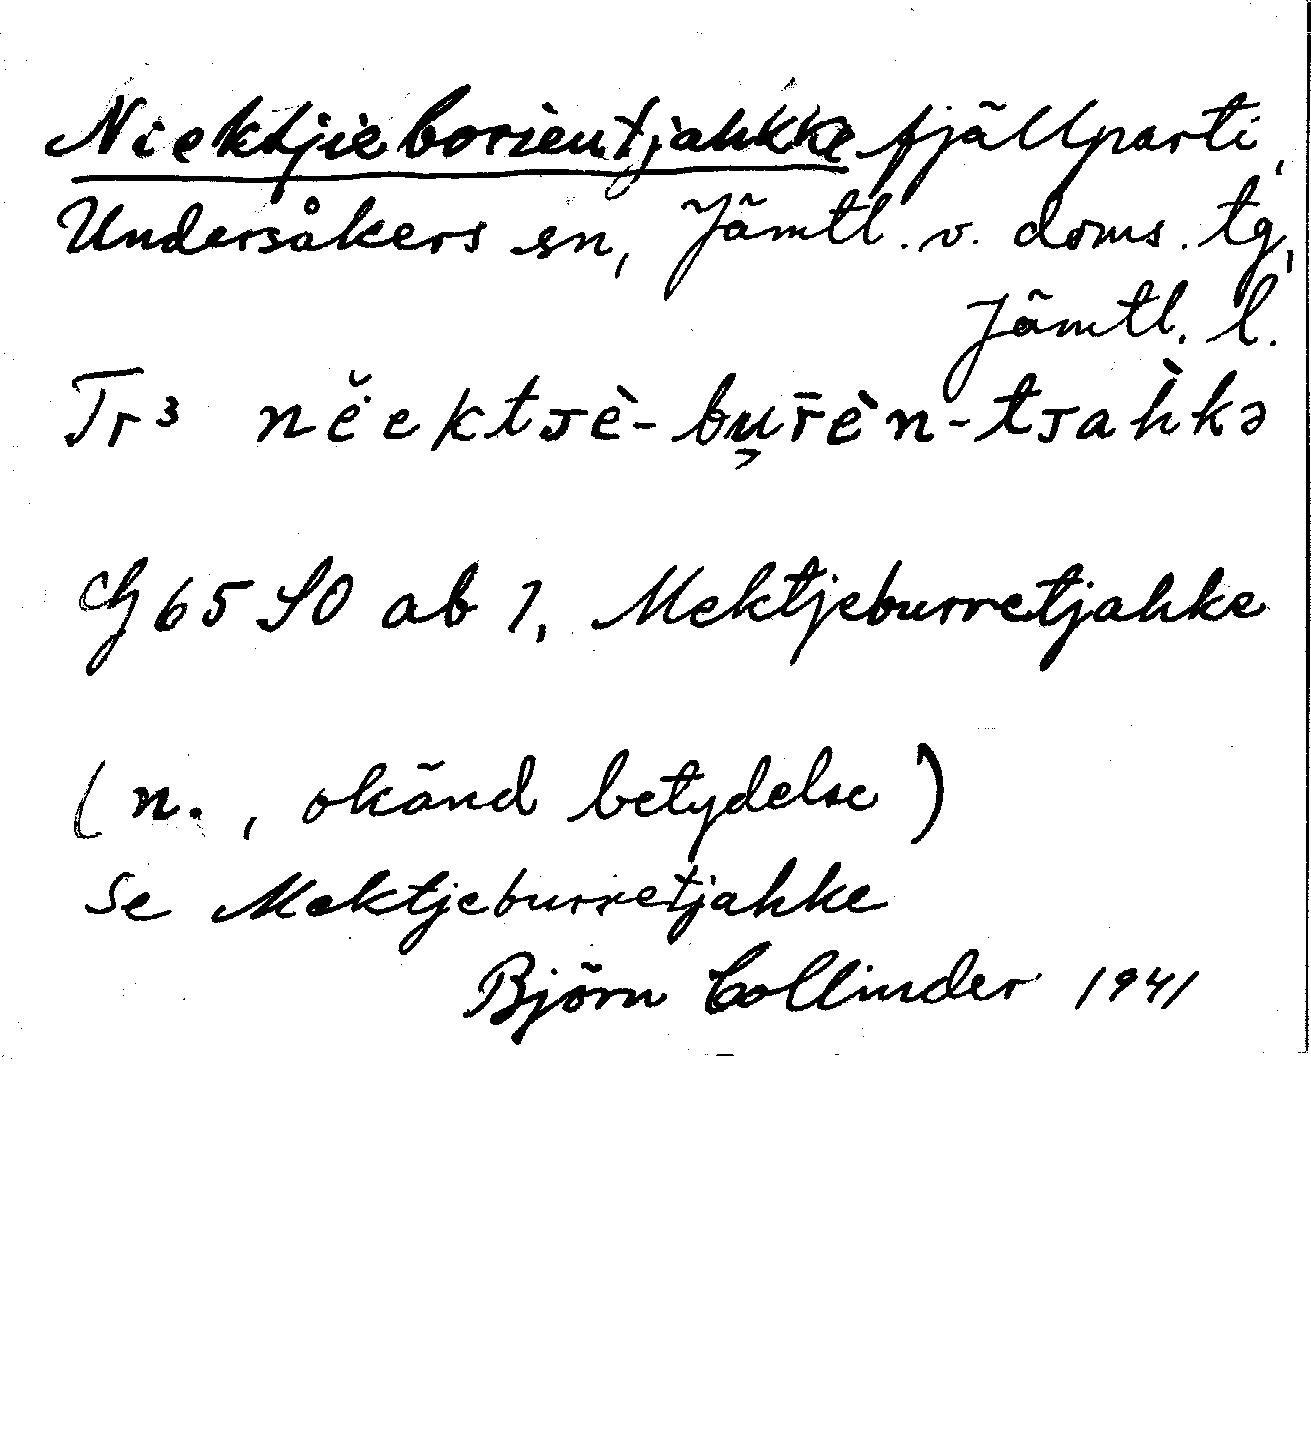 Niektjieborientjahkke fjällparti,
Undersåkers sn, Jämtl. v. doms. tg,
Jämtl. l.
Tr³ nĕektsè-bu̬r̄èn-tsaḣkə
Gg 65 SO ab 1, Mektjeburretjahke
(n., okänd betydelse)
Se Mektjeburretjahke
Björn Collinder 1941